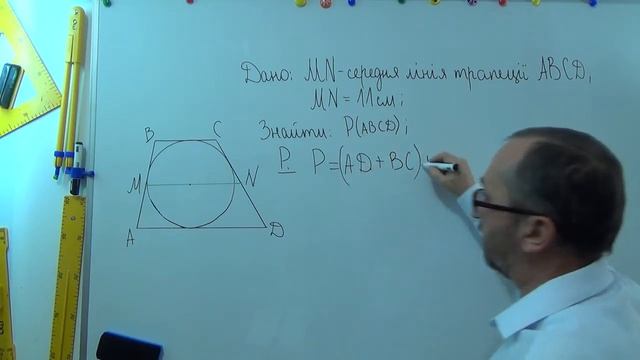 Дано: MN-середня лінія трапеції ABCD,
MN = 11 см;
Знайти: P(ABCD);
P. P=(AD+BC)
B C
M N
A D